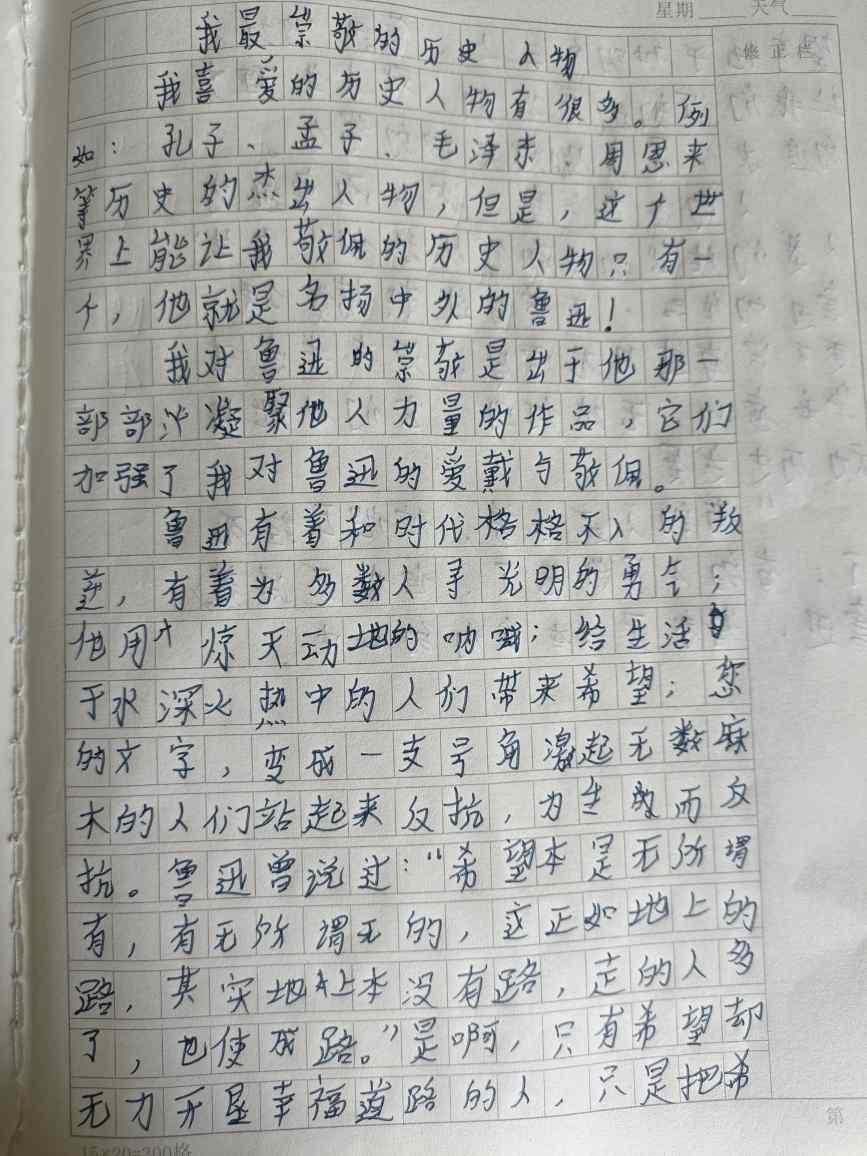 星期 天气
修正栏
我最崇敬的历史人物
我喜爱的历史人物有很多。例
如：孔子、孟子、毛泽东、周恩来
等历史的杰出人物，但是，这个世
界上能让我敬佩的历史人物只有一
个，他就是名扬中外的鲁迅！
我对鲁迅的崇敬是出于他那一
部部凝聚他人力量的作品，它们
加强了我对鲁迅的爱戴与敬佩。
鲁迅有着和时代格格不入的叛
逆，有着为多数人寻光明的勇气；
他用惊天动地的呐喊；给生活
于水深火热中的人们带来希望；您
的文字，变成一支号角激起无数麻
木的人们站起来反抗，为生而反
抗。鲁迅曾说过：“希望本是无所谓
有，有无所谓无的，这正如地上的
路，其实地上本没有路，走的人多
了，也使成路。”是啊，只有希望却
无力开垦幸福道路的人，只是把希
第
15×20=300格